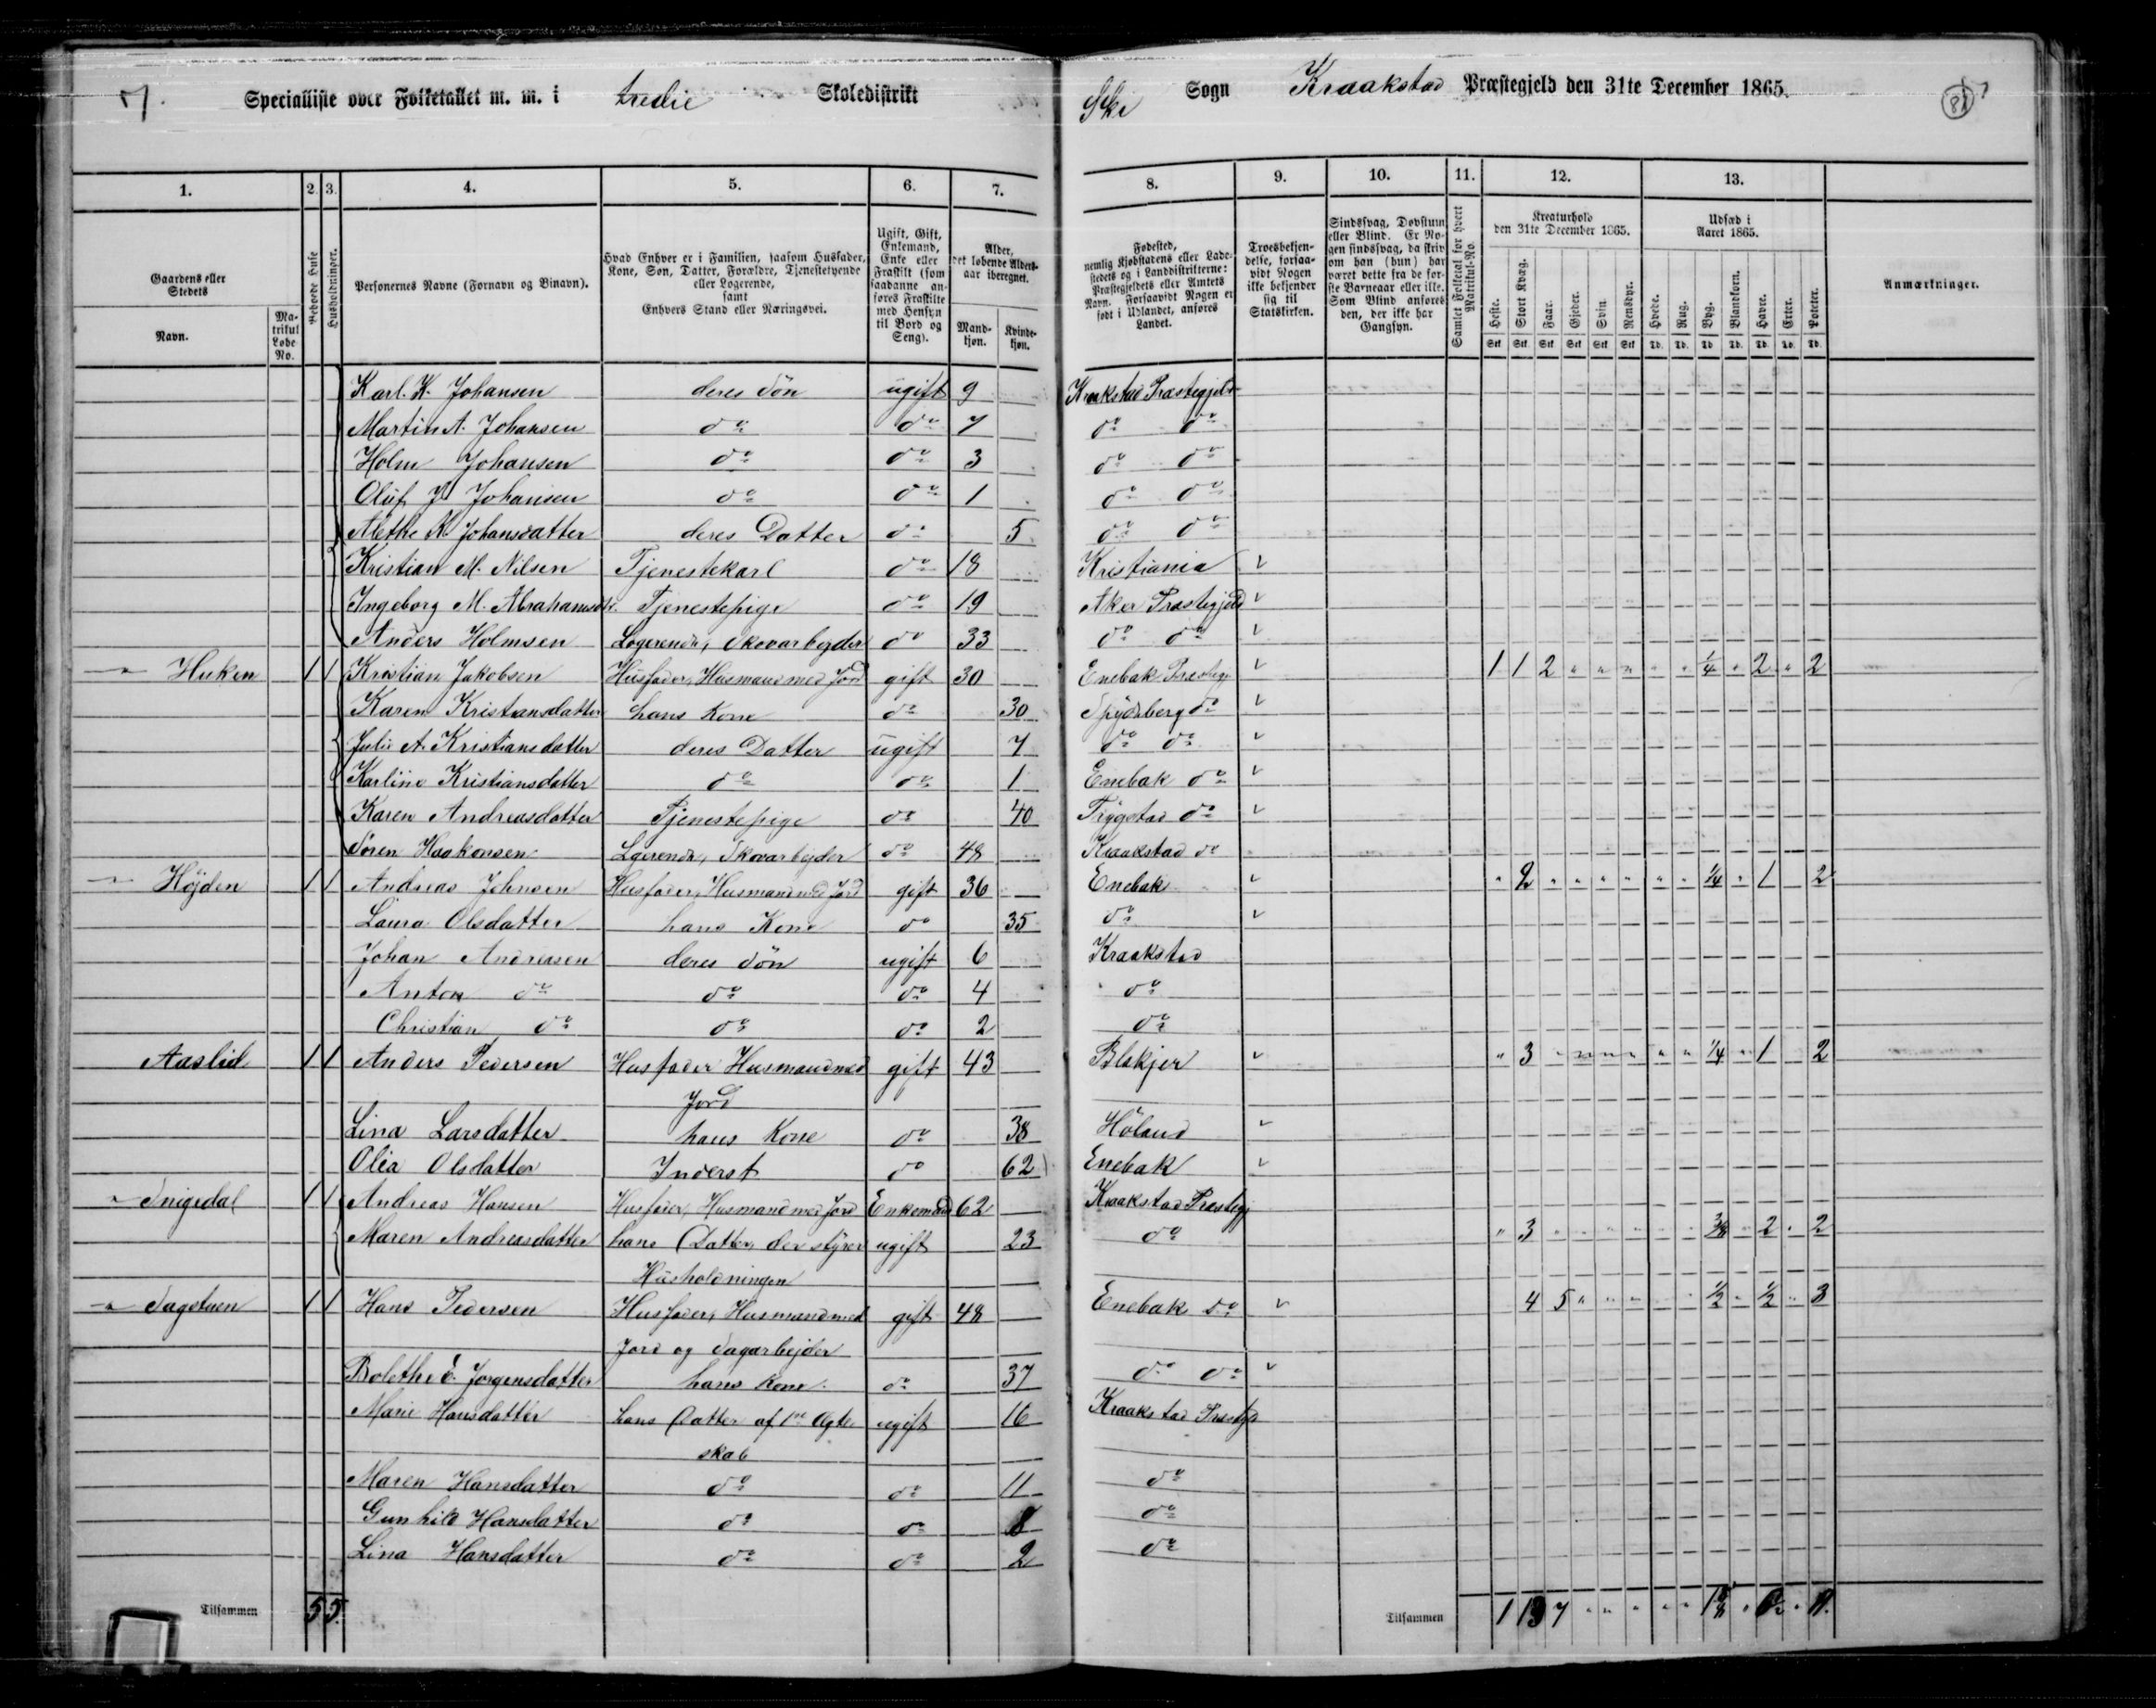 7.
Specialliste over Folketallet m. m. i tredie Skoledistrikt
Ski Sogn Kraakstad Præstegjeld den 31te December 1865.
1. 2. 3. 4. 5. 6. 7. 8. 9. 10. 11. 12. 13.
Gaardens eller Stedets
Navn.
Matrikul Løbe No.
Beboede Huse
Husholdninger.
Personernes Navne (Fornavn og Binavn).
Hvad Enhver er i Familien, saasom Husfader, Kone, Søn, Datter, Forældre, Tjenestetyende eller Logerende, samt Enhvers Stand eller Næringsvei.
Ugift, Gift, Enkemand, Enke eller Fraskilt (som saadanne anføres Fraskilte med Hensyn til Bord og Seng).
Alder, det løbende Alders-aar iberegnet.
Mandkjøn.
Kvindekjøn.
Fødested, nemlig Kjøbstadens eller Ladestedets og i Landdistrikterne: Præstegjeldets eller Amtets Navn. Forsaavidt Nogen er født i Udlandet, anføres Landet.
Troesbekjendelse, forsaavidt Nogen ikke bekjender sig til Statskirken.
Sindssvag, Døvstum eller Blind. Er Nogen sindssvag, da skrives om han (hun) har været dette fra de første Barneaar eller ikke. Som Blind anføres den, der ikke har Gangsyn.
Samlet Folketal for hvert Matrikul-No.
Kreaturhold den 31te December 1865.
Heste. Stort Kvæg. Faar. Gjeder. Svin. Rensdyr.
Udsæd i Aaret 1865.
Hvede. Rug. Byg. Blandkorn. Havre. Erter. Poteter.
Anmærkninger.
Karl. K. Johansen deres Søn ugift 9 Kraakstad Præstegjeld
Martin A. Johansen do do 7 do do
Holm Johansen do do 3 do do
Oluf J. Johansen do do 1 do do
Alethe K. Johansdatter deres Datter do 5 do do
Kristian M. Nilsen Tjenestekarl do 18 Kristiania
Ingeborg M. Abrahamsdtr. Tjenestepige do 19 Aker Præstegjeld
Anders Holmsen Logerende, Skovarbejder do 33 do do
" Huken 1 1 Kristian Jakobsen Husfader, Husmand med Jord gift 30 Enebak Præstegj 1 1 2 " " " " " 1/4 " 2 " 2
Karen Kristiansdatter hans Kone do 30 Spydeberg do
Julie A. Kristiansdatter deres Datter ugift 7 do do
Karline Kristiansdatter do do 1 Enebak do
Karen Andreasdatter Tjenestepige do 40 Trygstad do
Søren Haakonsen Lgerende, Skovarbejder do 48 Kraakstad do
" Höjden 1 1 Andreas Johnsen Husfader, Husmand med Jord gift 36 Enebak " 2 " " " " " " 1/4 " 1 2
Laura Olsdatter hans Kone do 35 do
Johan Andreasen deres Søn ugift 6 Kraakstad
Anton do do do 4 do
Christian do do do 2 do
Aaslid 1 1 Anders Pedersen Husfader Husmand med gift 43 Blakjer " 3 " " " " " " 1/4 " 1 2
Jord
Lina Larsdatter hans Kone do 38 Höland
Olia Olsdatter Inderst do 62 Enebak
" Snigedal 1 1 Andreas Hansen Husfader, Husmand med Jord Enkemand 62 Kraakstad Præstegj
Maren Andreasdatter hans Datter, der styrer ugift 23 do " 3 " " " " " " 3/8 " 2 " 2
Husholdningen
" Sagstuen 1 1 Hans Pedersen Husfader, Husmand med gift 48 Enebak do 4 5 " " " 1/2 " 1/2 " 3
Jord og Sagarbejder
Bolethe E. Jorgensdatter hans Kone do 37 do do
Marie Hansdatter hans Datter af 1ste Ægte ugift 16 Kraakstad Præstgj
skab
Maren Hansdatter do do 11 do
Gunhild Hansdatter do do 8 do
Lina Hansdatter do do 2 do
Tilsammen 5 5.
Tilsammen 1 13 7